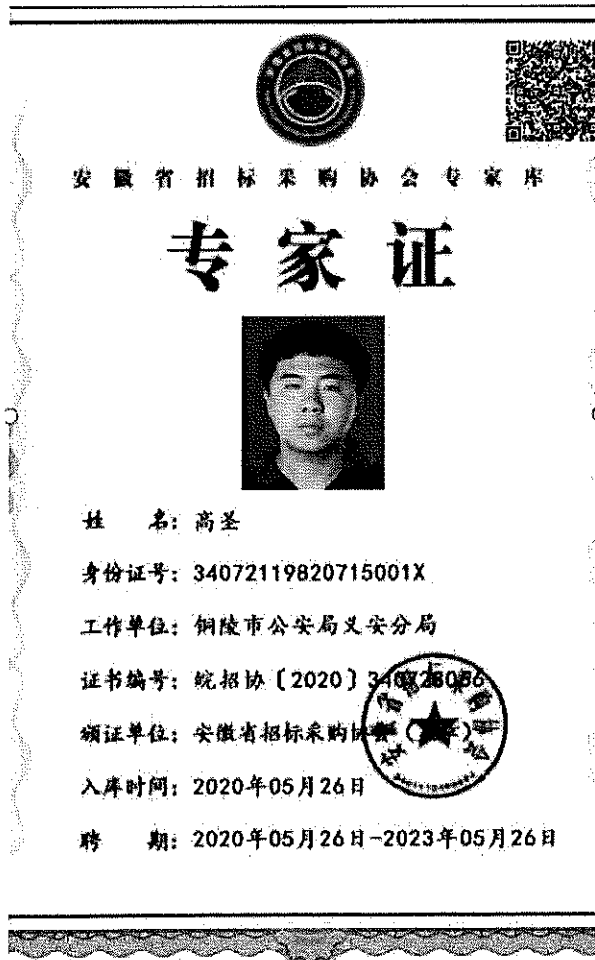 安徽省招标采购协会专家库
专家证
姓 名：高圣
身份证号：34072119820715001X
工作单位：铜陵市公安局义安分局
证书编号：皖招协〔2020〕340728056
颁证单位：安徽省招标采购协会（盖章）
入库时间：2020年05月26日
聘 期：2020年05月26日-2023年05月26日